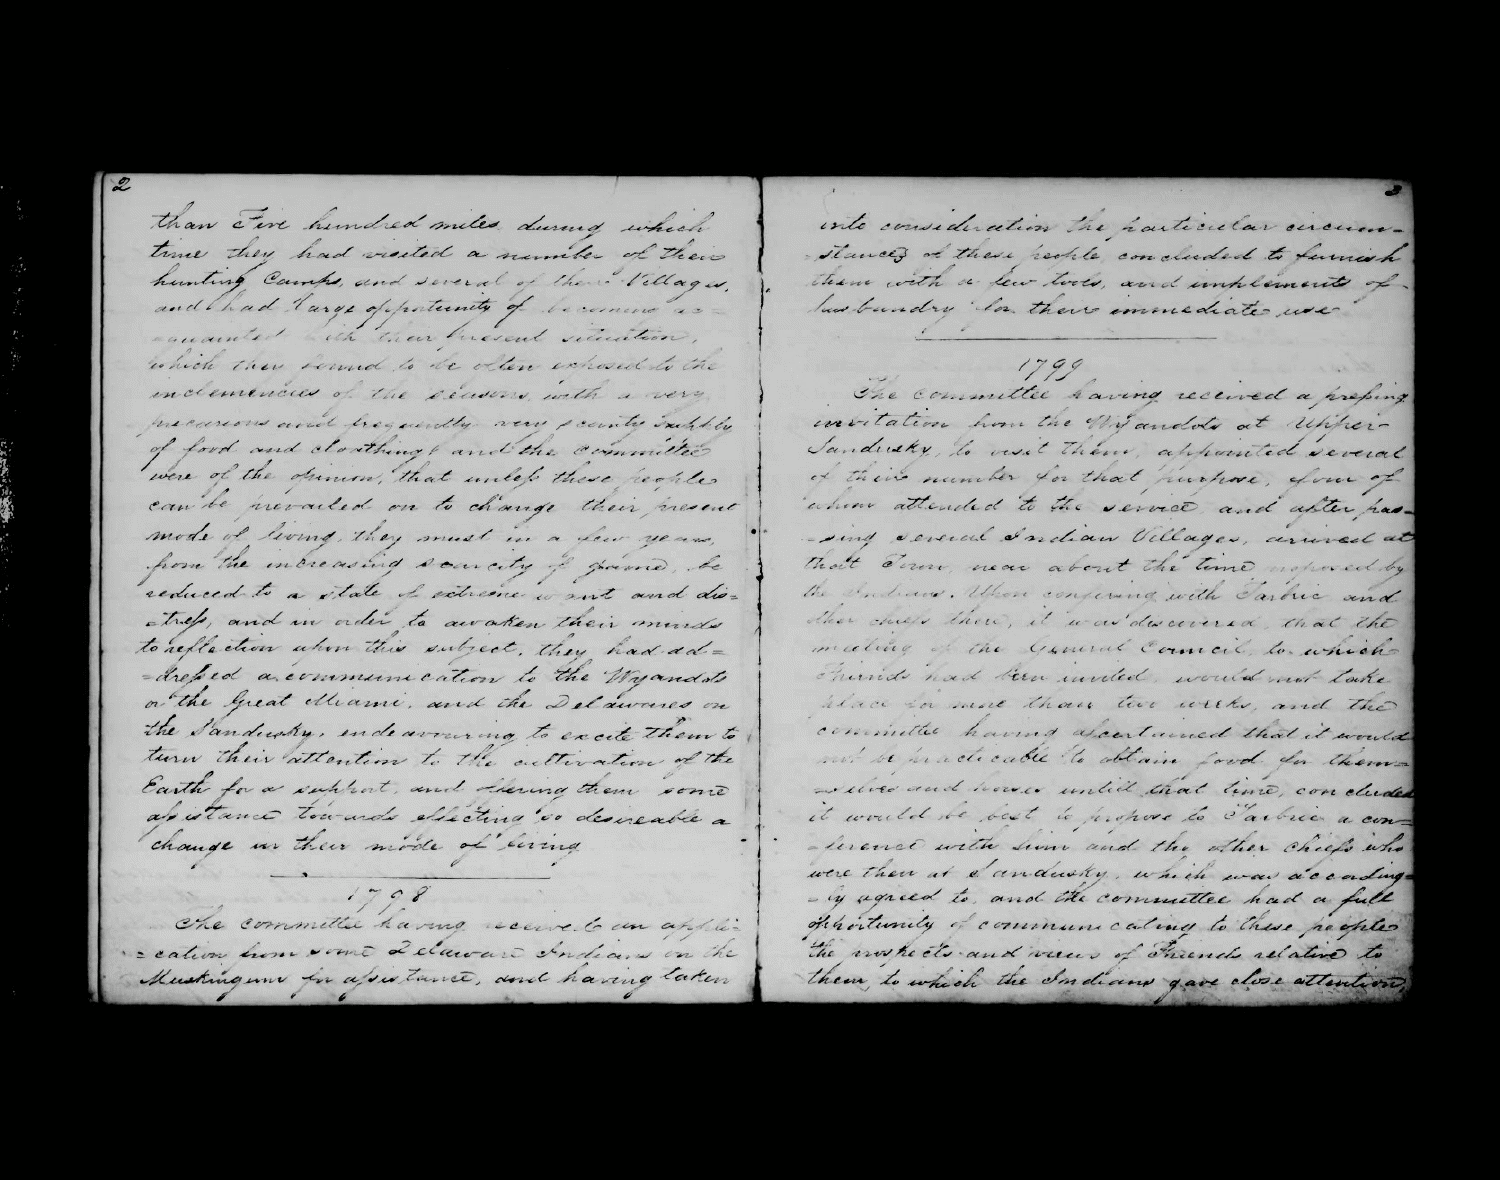 2
than Five hundred miles during which
time they had visited a number of their
hunting Camps, and several of their Villages,
and had large opportunity of becoming ac=
=quainted with their present situation,
which they found to be often exposed to the
inclemencies of the seasons, with a very
precarious and frequently very scanty supply
of food and cloathing; and the committee
were of the opinion, that unless these people
can be prevailed on to change their present
mode of living, they must in a few years,
from the increasing scarcity of game, be
reduced to a state of extreme want and dis=
=tress, and in order to awaken their minds
to reflection upon this subject, they had ad=
=dressed a communication to the Wyandots
on the Great Miami, and the Delawares on
the Sandusky, endeavouring to excite them to
turn their attention to the cultivation of the
Earth for a support, and offering them some
assistance towards effecting so desireable a
change in their mode of living
1798
The committee having received an appli=
=cation from some Delaware Indians on the
Muskingum for assistance, and having taken
3
into consideration the particular circum=
=stances of these people, concluded to furnish
them with a few tools, and implements of
husbandry for their immediate use
1799
The committee having received a pressing
invitation from the Wyandots at Upper
Sandusky, to visit them, appointed several
of their number for that purpose, four of
whom attended to the service, and after pas=
=sing several Indian Villages, arrived at
that Town, near about the time proposed by
the Indians. Upon conferring with Tarhie and
other chiefs there, it was discovered, that the
meeting of the General Council, to which
Friends had been invited, would not take
place for more than two weeks, and the
committee having ascertained that it would
not be practicable to obtain food for them=
=selves and horses until that time, concluded
it would be best to propose to Tarhie a con=
=ference with him and the other Chiefs who
were then at Sandusky, which was according=
=ly agreed to, and the committee had a full
opportunity of communicating to these people
the prospects and views of Friends relative to
them, to which the Indians gave close attention,